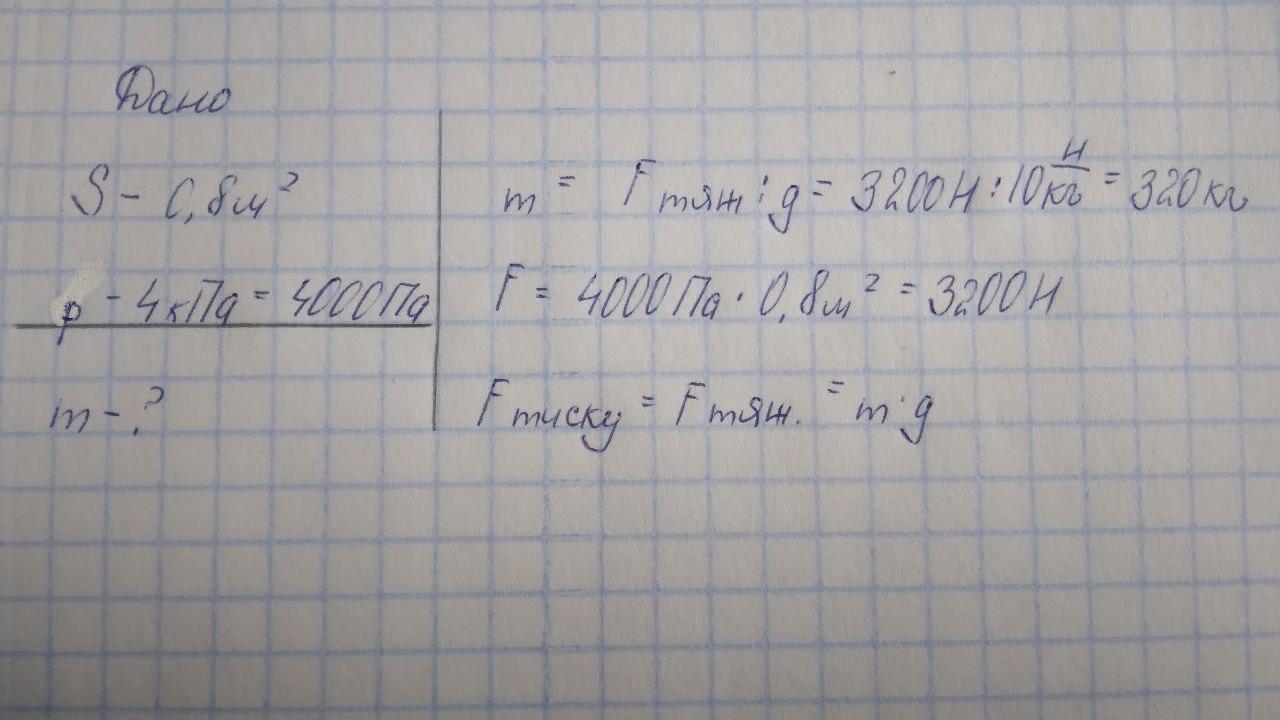 Дано
S - 0,8м²
p - 4кПа = 4000Па
m - ?
m = Fтяж : g = 3200Н : 10 Н/кг = 320кг
F = 4000Па · 0,8м² = 3200Н
Fтиску = Fтяж. = m·g